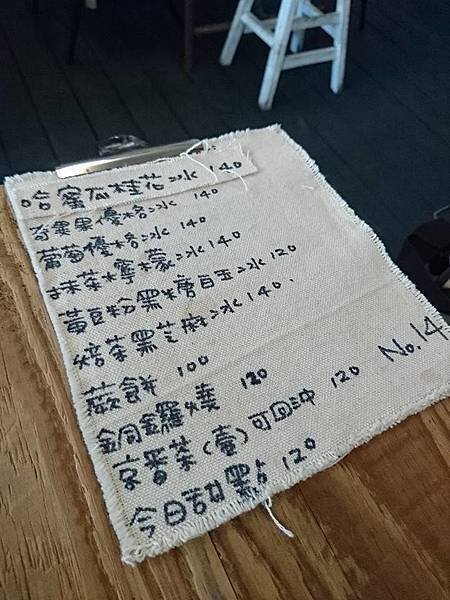 哈蜜瓜桂花冰 140
奇異果優格冰 140
葡萄優格冰 140
抹茶檸檬冰 140
黃豆粉黑糖白玉冰 120
焙茶黑芝麻冰 140.
蕨餅 100
銅鑼燒 120
京番茶(壺)可回沖 120
今日甜點 120
No.14